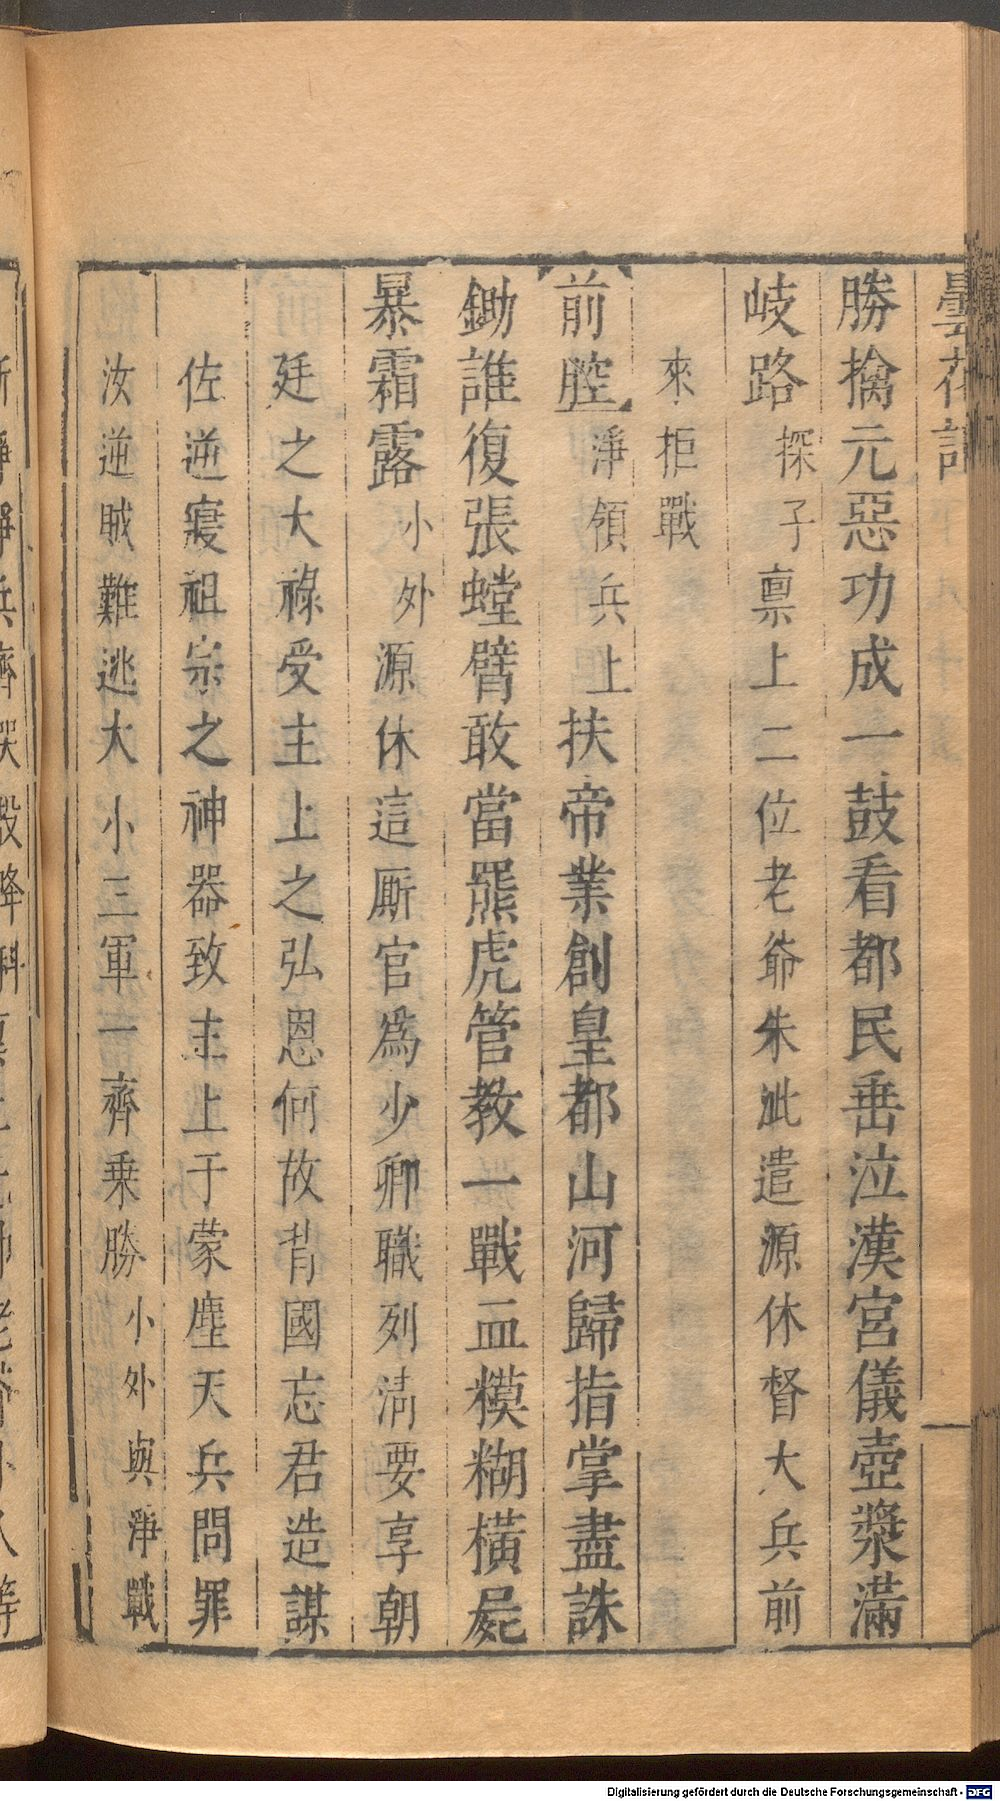 曇花記
勝擒元惡功成一鼓看都民垂泣漢宮儀壺漿滿
岐路探子稟上二位老爺朱泚遣源休督大兵前
來拒戰
前腔淨領兵上扶帝業創皇都山河歸指掌盡誅
鋤誰復張螳臂敢當羆虎管教一戰血糢糊橫屍
暴霜露小外源休這厮官爲少卿職列清要享朝
廷之大祿受主上之弘恩何故背國忘君造謀
佐逆寢祖宗之神器致主上于蒙塵天兵問罪
汝逆賊難逃大小三軍一齊乗勝小外與淨戰
Digitalisierung gefördert durch die Deutsche Forschungsgemeinschaft - DFG